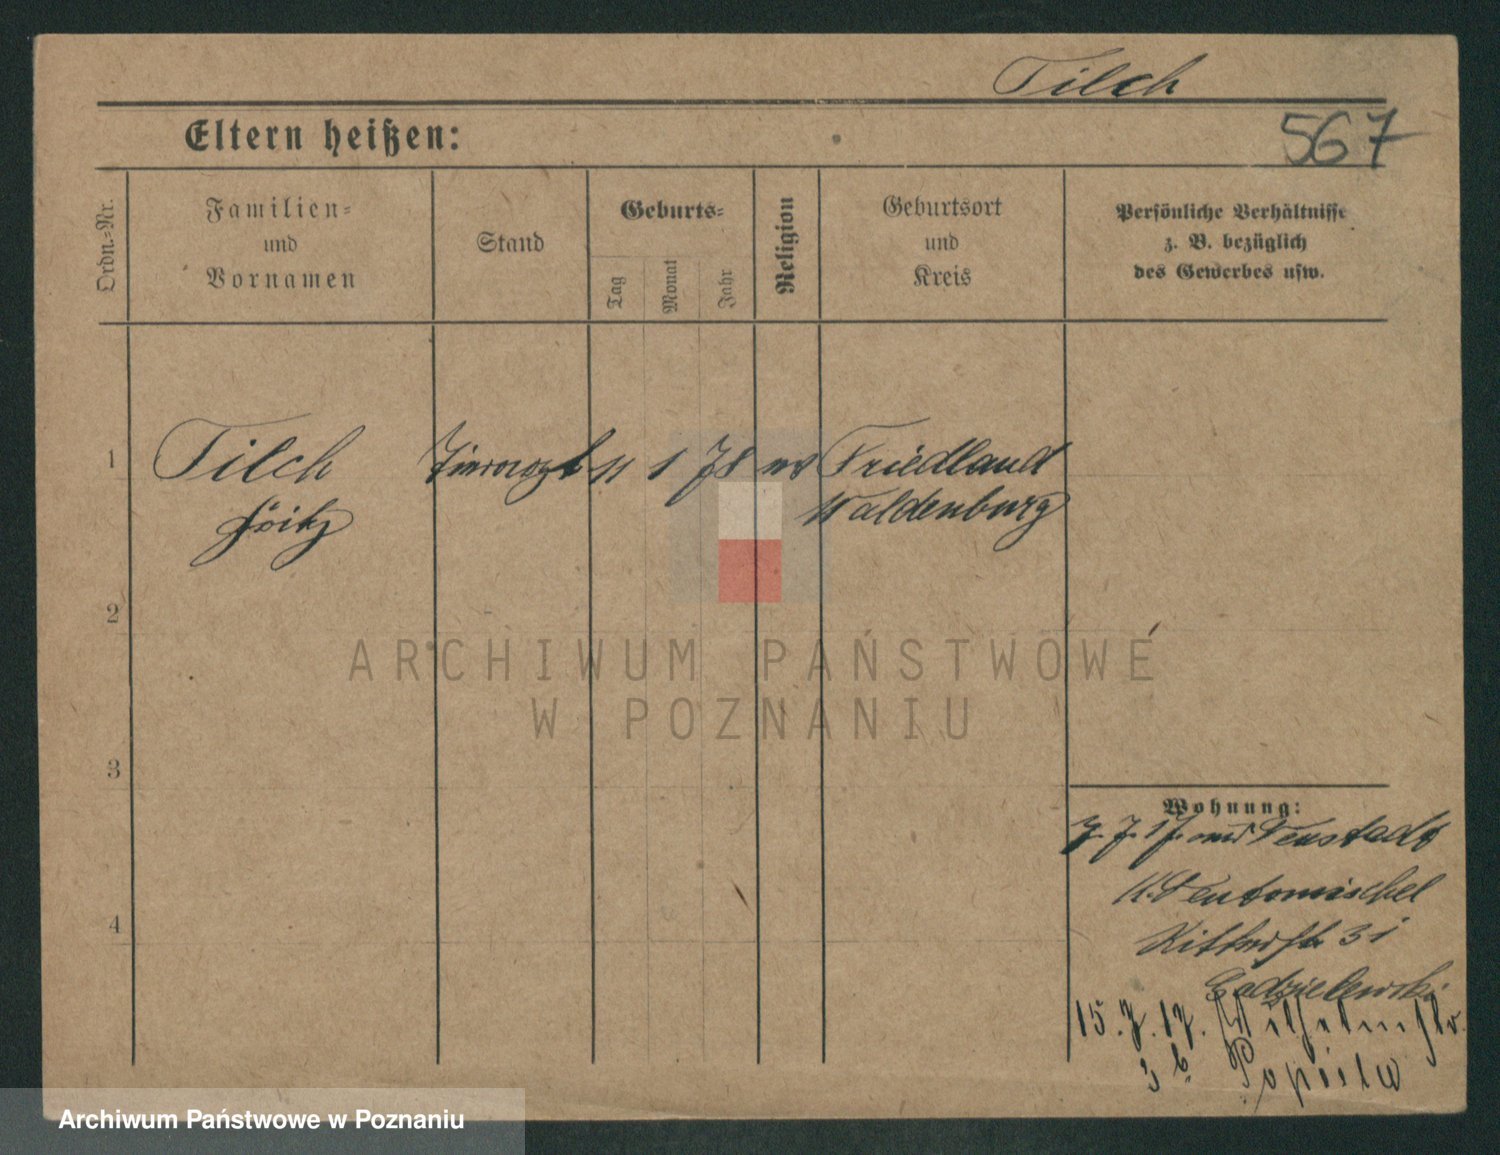 Tilch
567
Eltern heißen:
Ordn.-Nr.
Familien-
und
Vornamen
Stand
Geburts-
Tag
Monat
Jahr
Religion
Geburtsort
und
Kreis
Persönliche Verhältnisse
z. B. bezüglich
des Gewerbes usw.
1 Tilch 11 1 78 Friedland
Fritz Waldenburg
2
ARCHIWUM PAŃSTWOWE
W POZNANIU
3
Wohnung:
7. 17. Neustadt
Neutomischel
Ritterstr 31
15. 7. 17. Wilhelmstr.
4
Archiwum Państwowe w Poznaniu